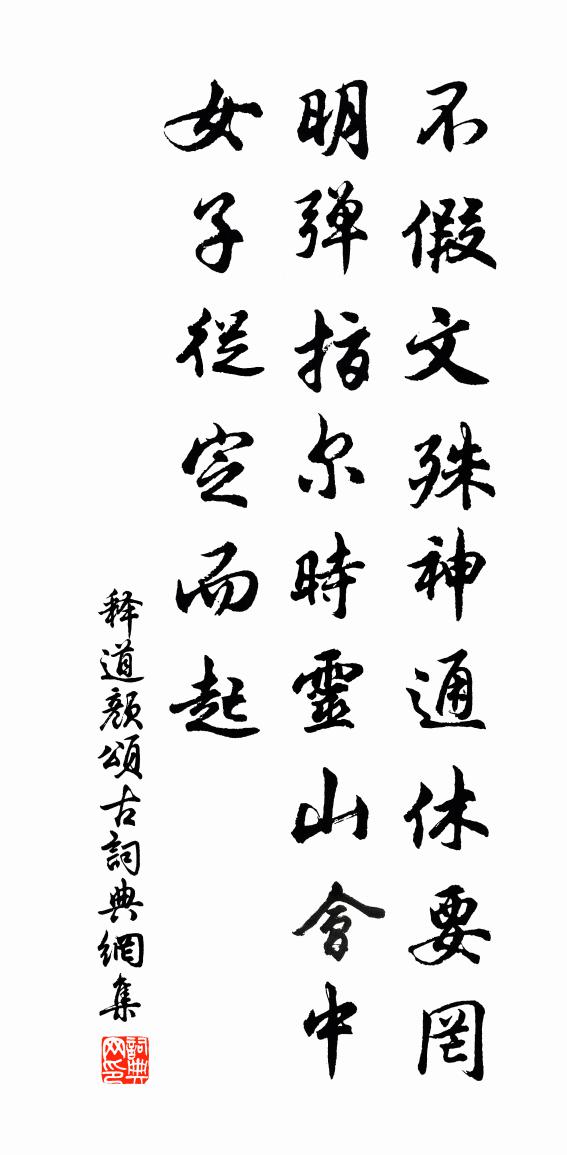 不假文殊神通休要罔
明弹指尔時靈山會中
女子從定而起
释道颜頌古詞典網集
詞典網印